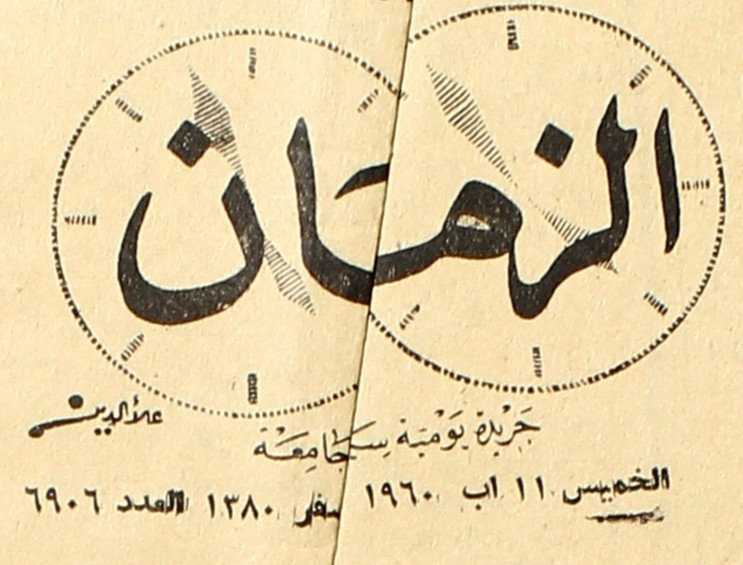 الزمان
علاءالدين
جريدة يومية جامعة
الخميس ١١ اب ١٩٦٠ صفر ١٣٨٠ العدد ٦٩٠٦